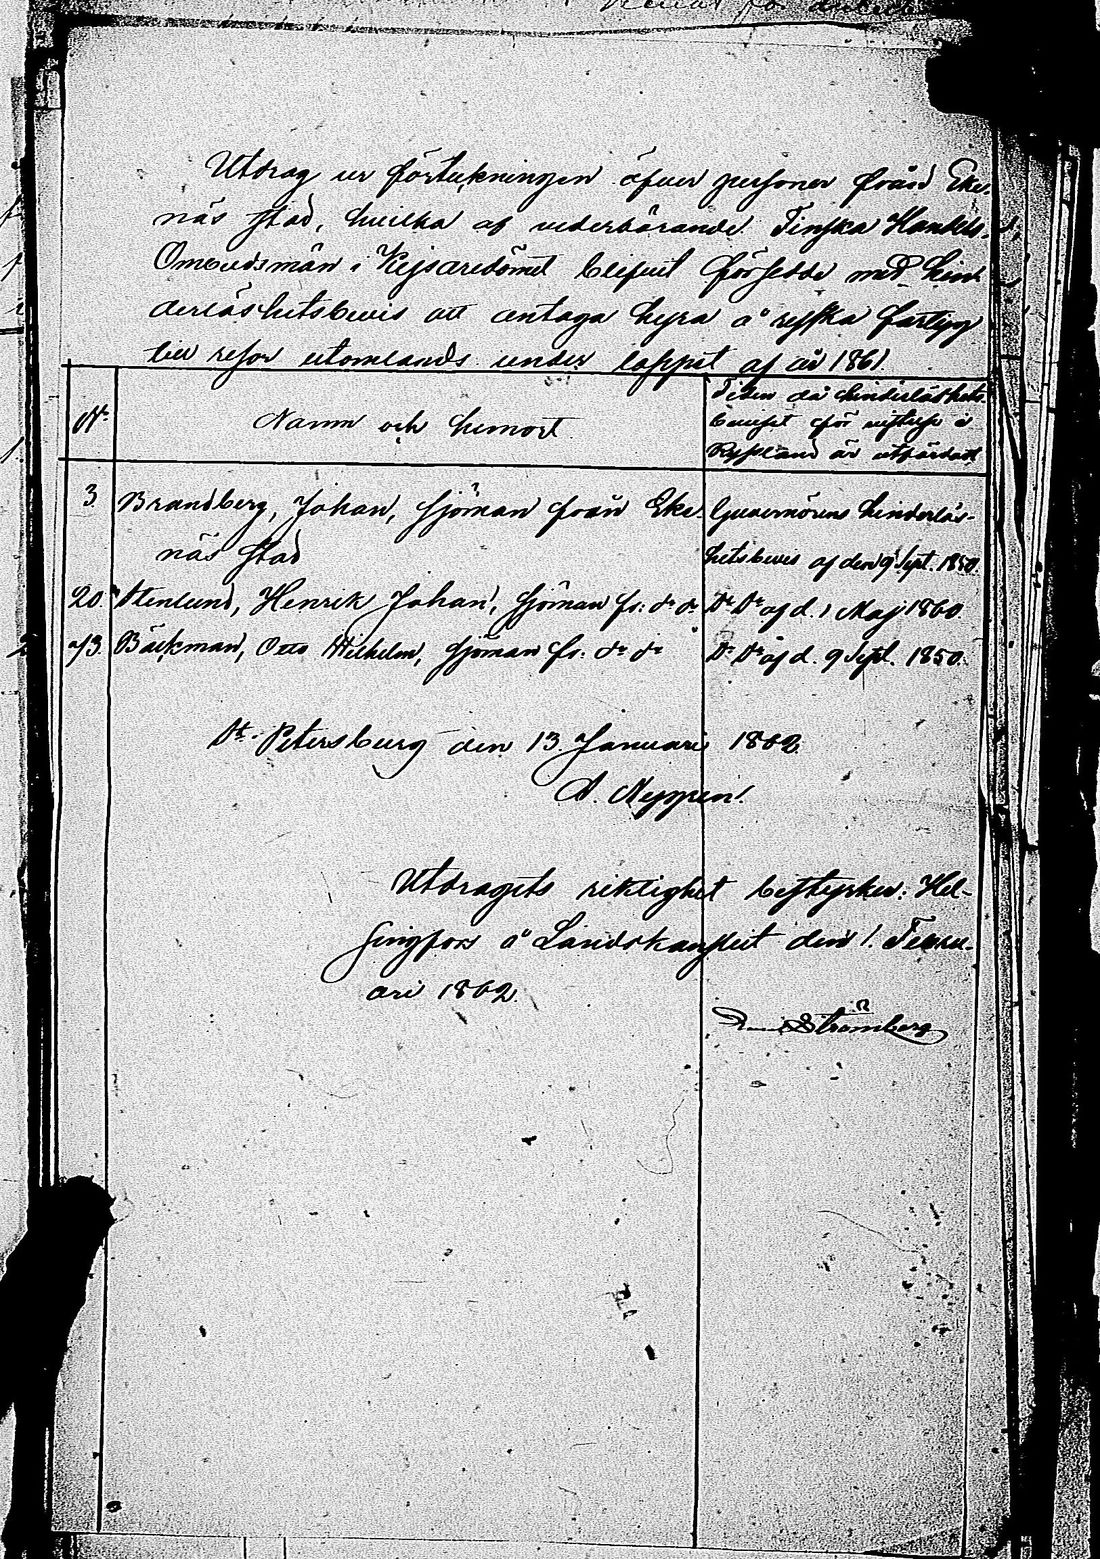 Utdrag ur förteckningen öfver personer från Eke-
näs stad, hvilka af vederbörande Finska Handels-
Ombudsmän i Kejsaredömet blifvit försedde med hin-
derlöshetsbevis att antaga hyra å ryska fartyg
till resor utomlands under loppet af år 1861.
No
Namn och hemort.
Tiden då hinderlöshets-
beviset för vistelse i
Ryssland är utfärdadt
3 Brandberg, Johan, sjöman från Eke- Guvernörens hinderlös-
näs stad hetsbevis af den 9 Sept. 1850.
20 Stenlund, Henrik Johan, sjöman fr: do do Do Do af d. 1 Maj 1860.
73 Bäckman, Otto Wilhelm, sjöman fr: do do Do Do af d. 9 Sept. 1850.
St. Petersburg den 13 Januari 1862
Utdragets riktighet bestyrker: Hel-
singfors å Landskansliet den 1. Febru-
ari 1862.
Strömberg